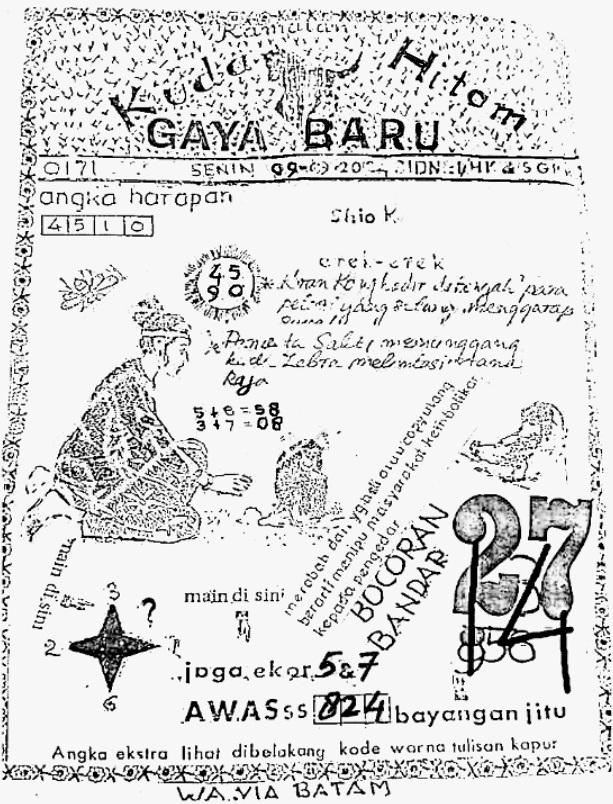 Ramalan
Kuda Hitam
GAYA BARU
0171 SENIN 09-09-202 SIDNEY/HK & SGP
angka harapan
4510
Shio K
erek-erek
45
90
Kiran Kong hadir ditengah para
petani yang sedang menggarap
Pandita Sakti menunggang
kuda Zebra melintasi istana
Raja
5+6=58
3+7=08
merobah dan
berarti menipu masyarakat kembalikan
kepada pengedar
BOCORAN
BANDAR
27
14
main di sini
3
?
2
1
6
main di sini
jaga ekor 5&7
AWASss 824 bayangan jitu
Angka ekstra lihat dibelakang kode warna tulisan kapur
WA.VIA BATAM